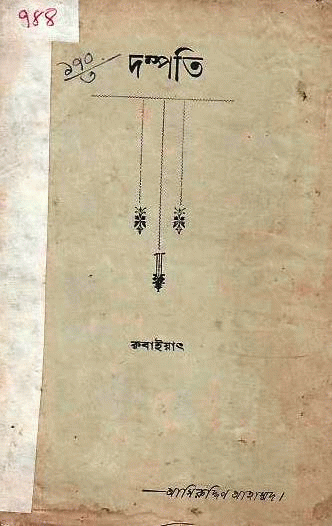 ৭৪৪
১৭০
৩
দম্পতি
রুবাইয়াৎ
—আমিরুদ্দিন আহাম্মদ।